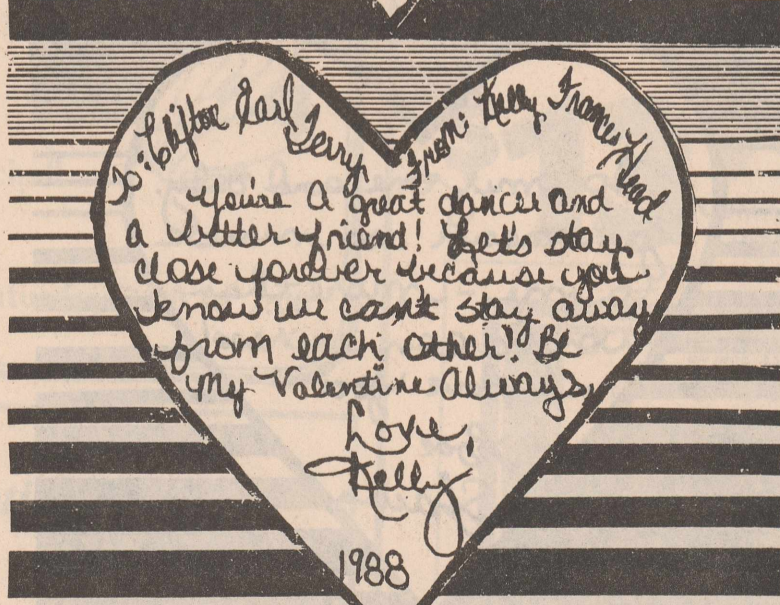 To: Clifton Earl Terry
From: Kelly Frances Head
You're a great dancer and
a better friend! Let's stay
close forever because you
know we can't stay away
from each other! Be
My Valentine Always,
Love,
Kelly
1988